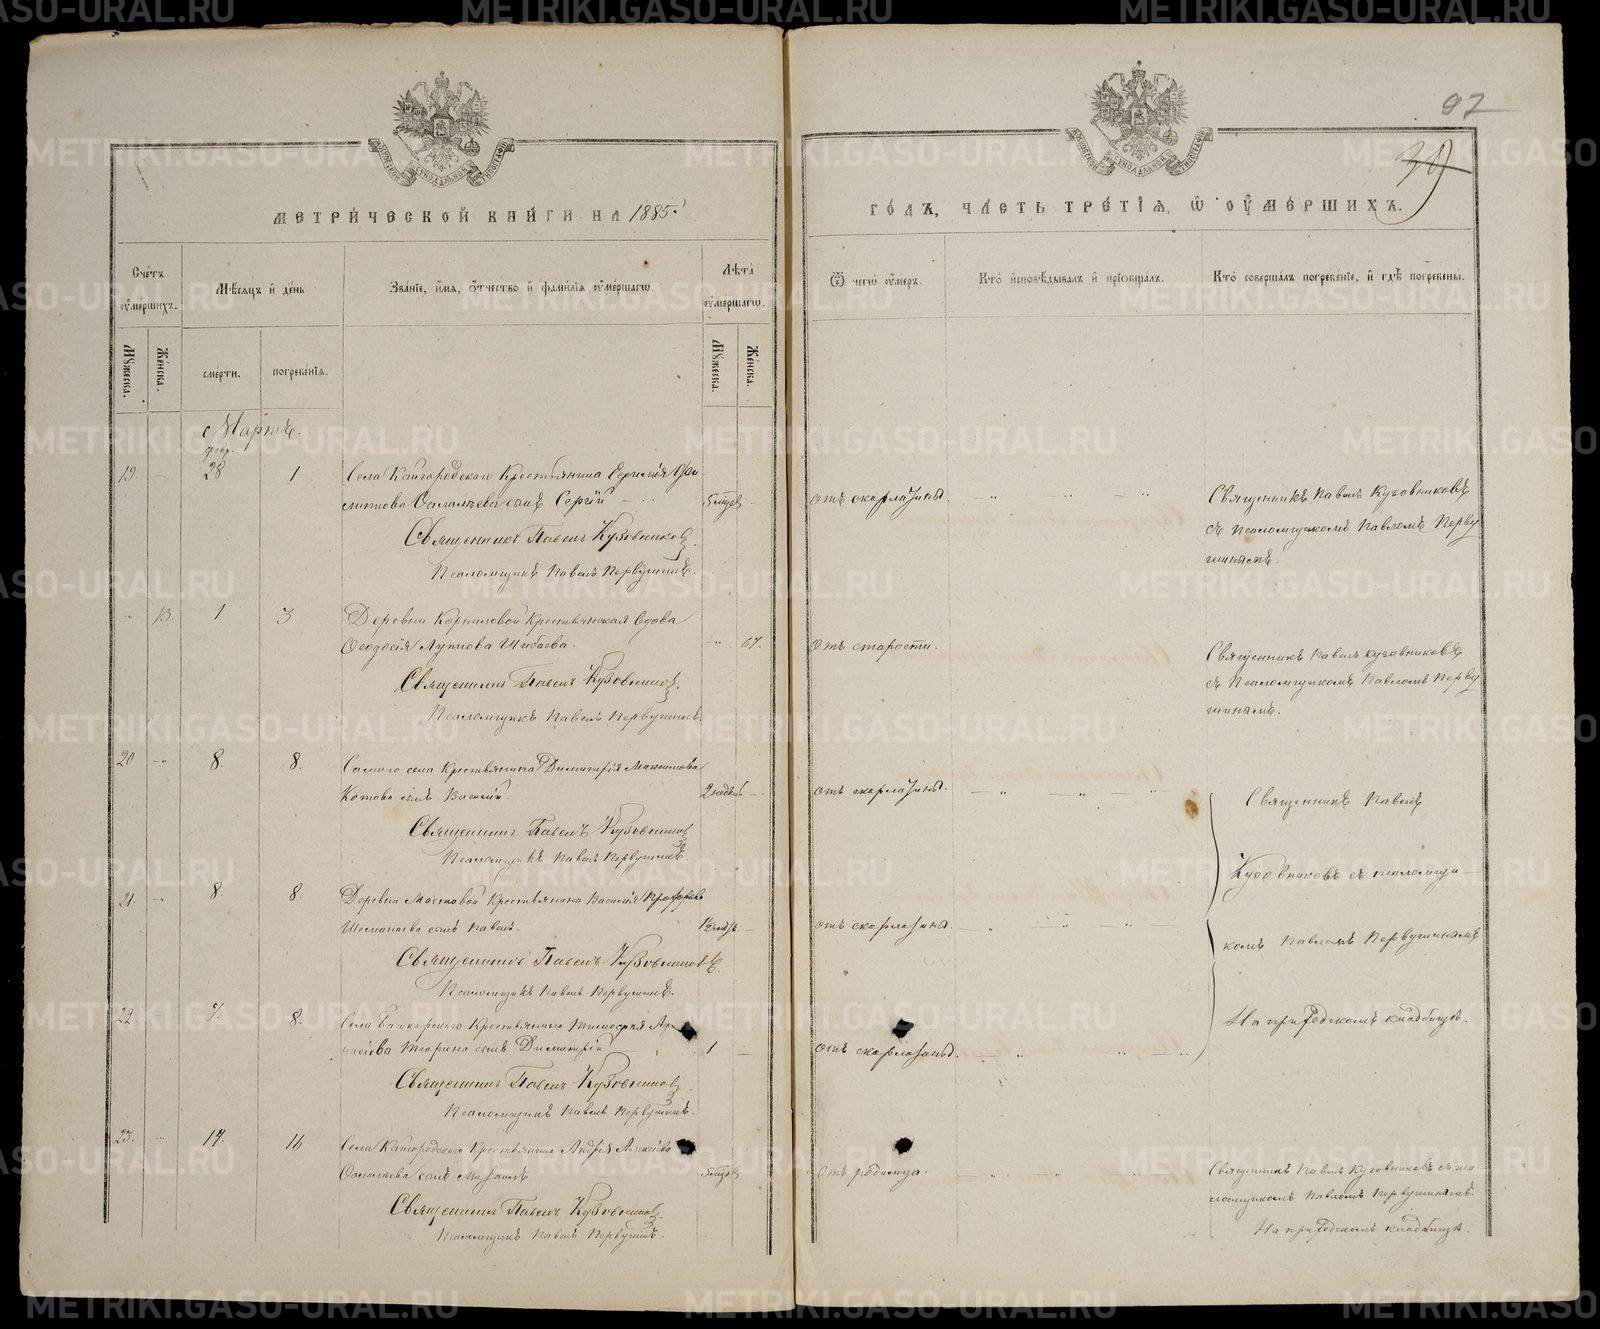 METRIKI.GASO-URAL.RU
92
39
МОСКОВСКОЙ СѴНОДАЛЬНОЙ ТИПОГРАФІИ
МОСКОВСКОЙ СѴНОДАЛЬНОЙ ТИПОГРАФІИ
МЕТРИЧЕСКОЙ КНИГИ НА 1885.
ГОДЪ, ЧАСТЬ ТРЕТІѦ, Ѡ ОУМЕРШИХЪ.
Счетъ оумершихъ.
Мѣсѧцъ и день
Званіе, имѧ, отчество и фамиліѧ оумершагѡ.
Лѣта оумершагѡ.
Ѿ чегѡ оумеръ.
Кто исповѣдывалъ и пріобщалъ.
Кто совершалъ погребеніе, и гдѣ погребены.
Мужеска.
Женска.
смерти.
погребеніѧ.
Мужеска.
Женска.
Мартъ.
февр.
19. - 28 1 Села Кайгородскаго Крестьянина
сынъ Сергій 5 мцев - отъ скарлатины.
Священникъ Павелъ Кузовниковъ
съ Псаломщикомъ Павломъ Перву
шинымъ.
Священникъ Павелъ Кузовниковъ.
Псаломщикъ Павелъ Первушинъ.
- 13. 1 3 Деревни Корниловой Крестьянская вдова
Ѳеодосія Шибаева. - 67. Отъ старости.
Священникъ Павелъ Кузовниковъ
съ Псаломщикомъ Павломъ Перву
шинымъ.
Священникъ Павелъ Кузовниковъ.
Псаломщикъ Павелъ Первушинъ.
20 - 8. 8. Самаго села Крестьянина Димитрія Максимова
Котова сынъ Василій. 2 недѣль - отъ скарлатины.
Священникъ Павелъ Кузовниковъ
Псаломщикъ Павелъ Первушинъ.
21. - 8. 8. Деревни Мостовой Крестьянина Василія
сынъ Павелъ. отъ скарлатины.
Священникъ Павелъ Кузовниковъ.
Псаломщикъ Павелъ Первушинъ.
22. - 7. 8. Села Крестьянина Тимофея
сынъ Димитрій 1 - отъ скарлатины.
Священникъ Павелъ Кузовниковъ
Псаломщикъ Павелъ Первушинъ.
Священникъ Павелъ
Кузовниковъ съ псаломщи-
комъ Павломъ Первушинымъ
На приходскомъ кладбищѣ.
23. - 14. 16 Села Кайгородскаго Крестьянина Андрея Алексѣева
сынъ Михаилъ 5 мцев отъ родимца.
Священникъ Павелъ Кузовниковъ съ пса
ломщикомъ Павломъ Первушинымъ.
На приходскомъ кладбищѣ.
Священникъ Павелъ Кузовниковъ.
Псаломщикъ Павелъ Первушинъ.